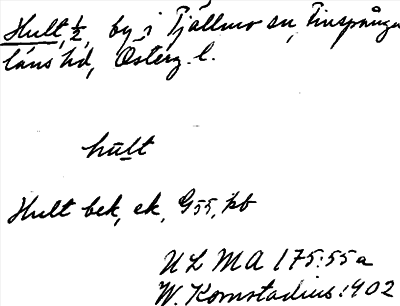 Hult, ½, by i Tjällmo sn, Finspånga
läns hd, Österg. l.
hult
Hult bek, ek, G55, kb
ULMA 175:55a
W. Kornstadius 1902